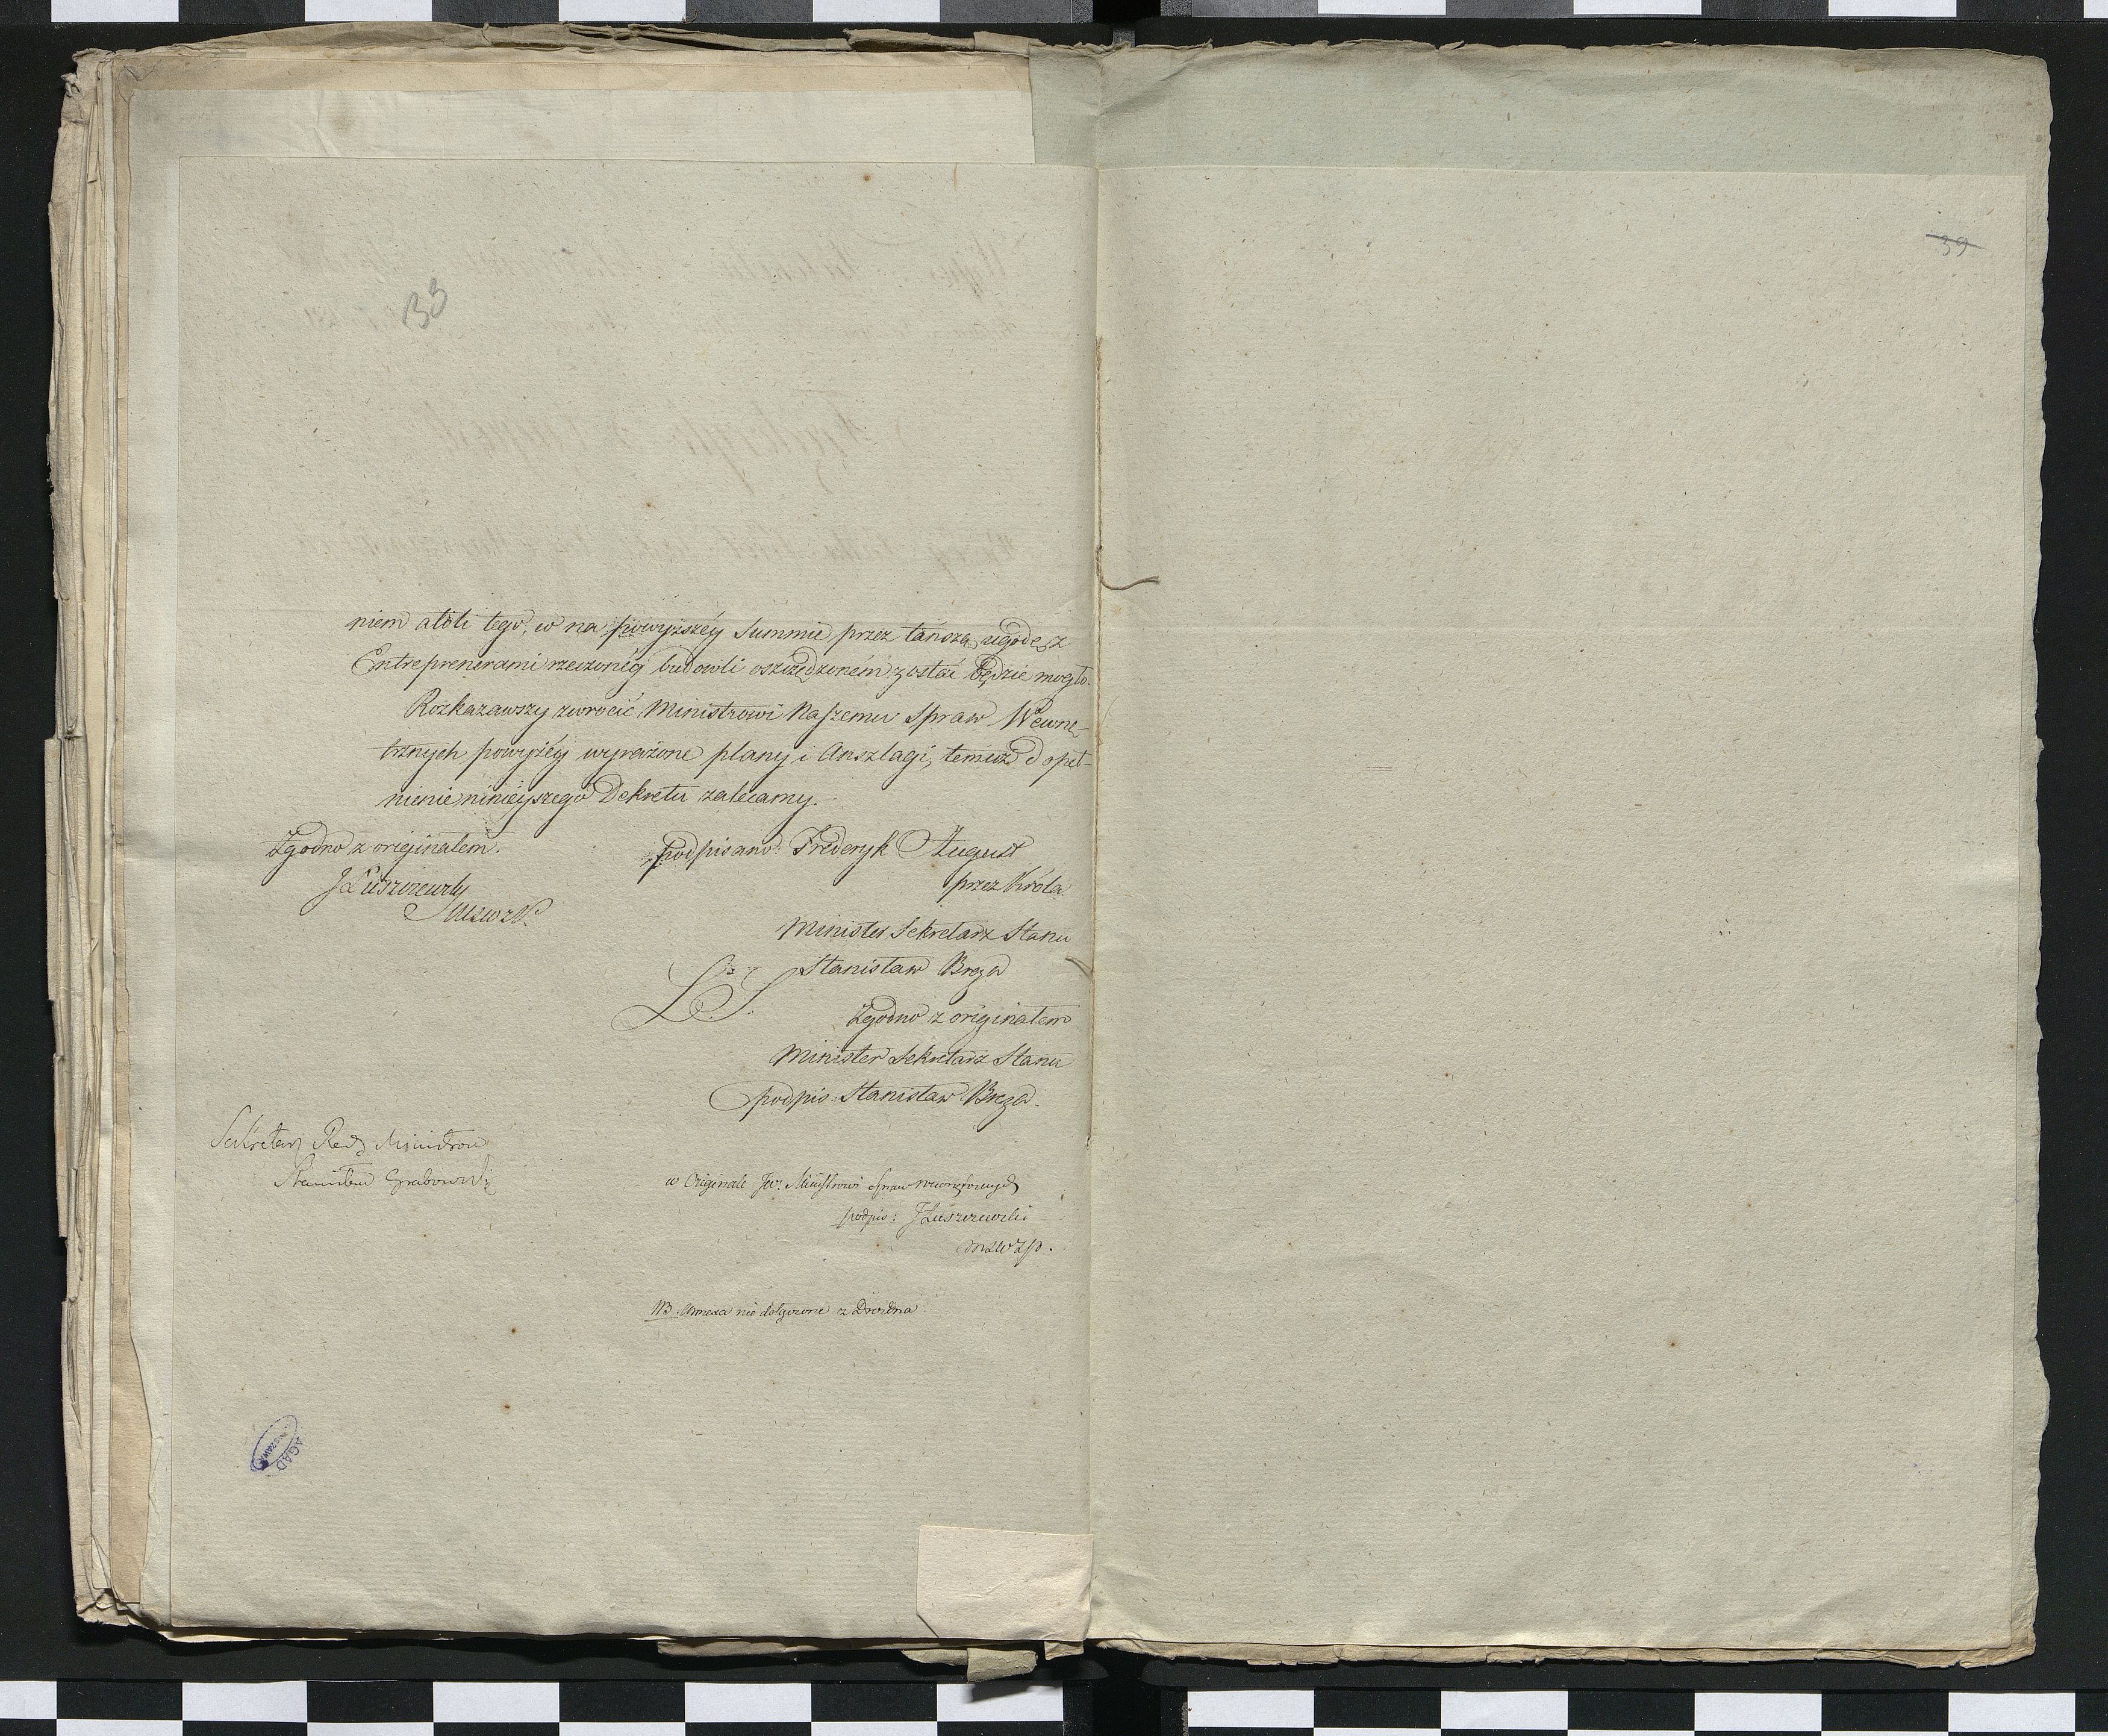 33
39
niem atoli tego, co na powyższéy Summie przez tańszą ugodę z
Entreprenerami rzeczonéy budowli oszczędzoném zostać będzie mogło.
Rozkazawszy zwrocić Ministrowi Naszemu Spraw Wewnę-
trznych powyżéy wyrażone plany i Anszlagi, temuż dopeł-
nienie ninieyszego Dekretu zalecamy.
Zgodno z originałem.
JŁuszczewsky
podpisano: Frederyk August
przez Króla
Minister Sekretarz Stanu
Stanisław Breza
L. S.
Zgodno z originałem
Minister Sekretarz Stanu
podpis: Stanisław Breza.
Sekretarz Rady Ministrow
Stanisław Grabowski
w Originale JW. Ministrowi Spraw Wewnętrznych
podpis: JŁuszczewski
NB. Annexa nie dołączone z Drezna.
AGAD
WARSZAWA